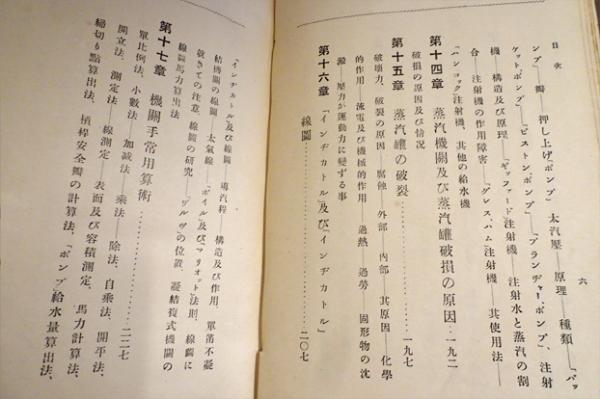 目次
六
ンプ」 瓣――押し上げ「ポンプ」 太汽壓――原理――種類――「バッ
ケットポンプ」、「ピストンポンプ」 「プランヂャーポンプ」、注射
機 構造及び原理、「ギッファード」注射機 注射水と蒸汽の割
合――注射機の作用障害――「グレスハム」注射機――其使用法――
「ハンコック」注射機、其他の給水機
第十四章 蒸汽機關及び蒸汽罐破損の原因‥一九二
破損の原因及び情況
第十五章 蒸汽罐の破裂‥‥‥‥‥‥一九七
破壞力、破裂の原因――腐蝕――外部 內部 其原因――化學
的作用 流電及び機械的作用――過熱 過勞――固形物の沈
澱――壓力が運動力に變ずる事
第十六章 「インヂカトル」及び「インヂカトル」
線圖‥‥‥‥‥‥‥‥二〇七
「インヂカトル」及び線圖――導汽程 構造及び作用、單筒不凝
結機關の線圖――大氣線――「ボイル」及び「マリオット」法則、線圖に
就きての注意、線圖の研究――「ヴルヴ」の位置、凝結複式機關の
線圖馬力算出法
第十七章 機關手常用算術‥‥‥‥‥‥二二七
單比例法、小數法――加減法――乘法――除法、自乘法、開平法、
開立法、測定法――線測定――表面及び容積測定、馬力計算法、
締切り點算出法、槓桿安全瓣の計算法、「ポンプ」給水量算出法、